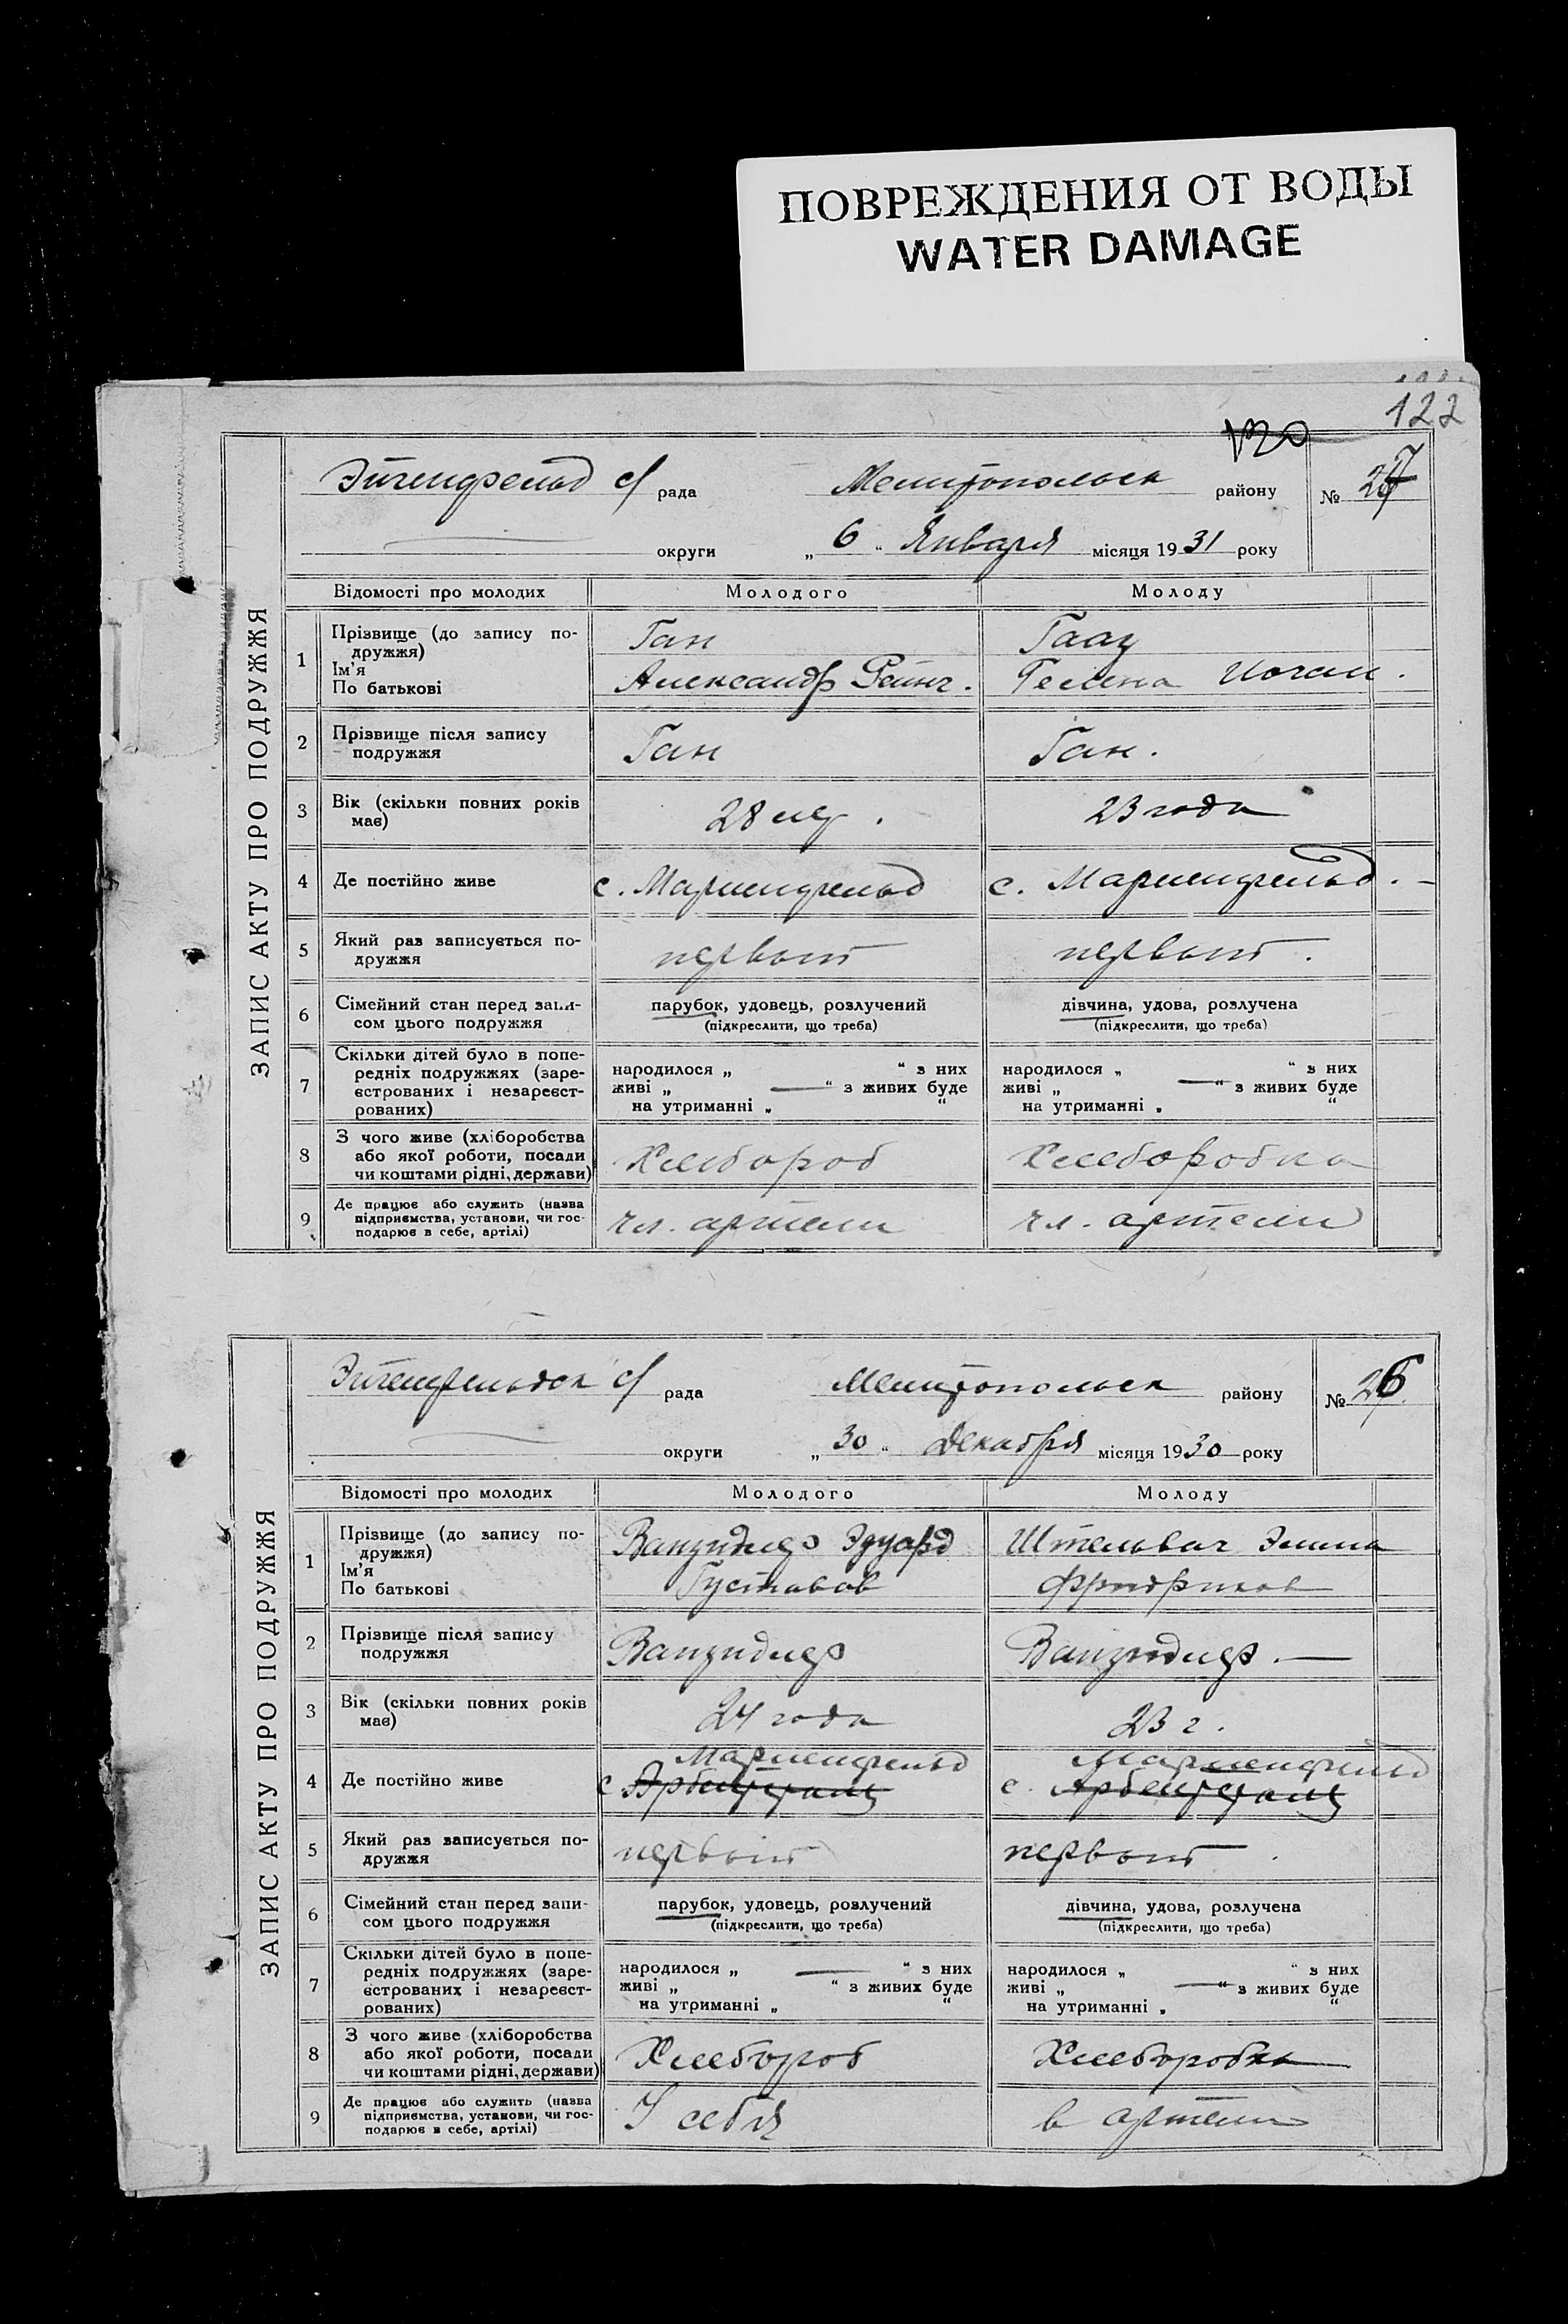 ПОВРЕЖДЕНИЯ ОТ ВОДЫ
WATER DAMAGE
122
120
ЗАПИС АКТУ ПРО ПОДРУЖЖЯ
Эйгенфельд с/ рада Мелитопольск району № 27
округи „ 6 “ Января місяця 1931 року
Відомості про молодих Молодого Молоду
1 Прізвище (до запису по- Ган Гаац
дружжя)
Ім'я Александр Рейнг. Гелена Иоган.
По батькові
2 Прізвище після запису Ган Ган.
подружжя
3 Вік (скільки повних років 28 лет. 23 года
має)
4 Де постійно живе с. Мариенфельд с. Мариенфельд. –
5 Який раз записується по- первый первый.
дружжя
6 Сімейний стан перед запи- парубок, удовець, розлучений дівчина, удова, розлучена
сом цього подружжя (підкреслити, що треба) (підкреслити, що треба)
7 Скільки дітей було в попе- народилося „ “ з них народилося „ “ з них
редніх подружжях (заре- живі „ — “ з живих буде живі „ — “ з живих буде
єстрованих і незареєст- на утриманні „ “ на утриманні „ “
рованих)
8 З чого живе (хліборобства Хлебороб Хлеборобка
або якої роботи, посади
чи коштами рідні, держави)
9 Де працює або служить (назва чл. артели чл. артели
підприємства, установи, чи гос-
подарює в себе, артілі)
ЗАПИС АКТУ ПРО ПОДРУЖЖЯ
Эйгенфельдск с/ рада Мелитопольск району № 26
округи „ 30 “ Декабря місяця 1930 року
Відомості про молодих Молодого Молоду
1 Прізвище (до запису по- Ванзидлер Эдуард Штельвач Эмма
дружжя)
Ім'я Густавов Фридрихов
По батькові
2 Прізвище після запису Ванзидлер Ванзидлер. —
подружжя
3 Вік (скільки повних років 24 года 23 г.
має)
Мариенфельд Мариенфельд
4 Де постійно живе с. с.
5 Який раз записується по- первый первый.
дружжя
6 Сімейний стан перед запи- парубок, удовець, розлучений дівчина, удова, розлучена
сом цього подружжя (підкреслити, що треба) (підкреслити, що треба)
7 Скільки дітей було в попе- народилося „ — “ з них народилося „ “ з них
редніх подружжях (заре- живі „ “ з живих буде живі „ — “ з живих буде
єстрованих і незареєст- на утриманні „ “ на утриманні „ “
рованих)
8 З чого живе (хліборобства Хлебороб Хлеборобка
або якої роботи, посади
чи коштами рідні, держави)
9 Де працює або служить (назва У себя в артели
підприємства, установи, чи гос-
подарює в себе, артілі)